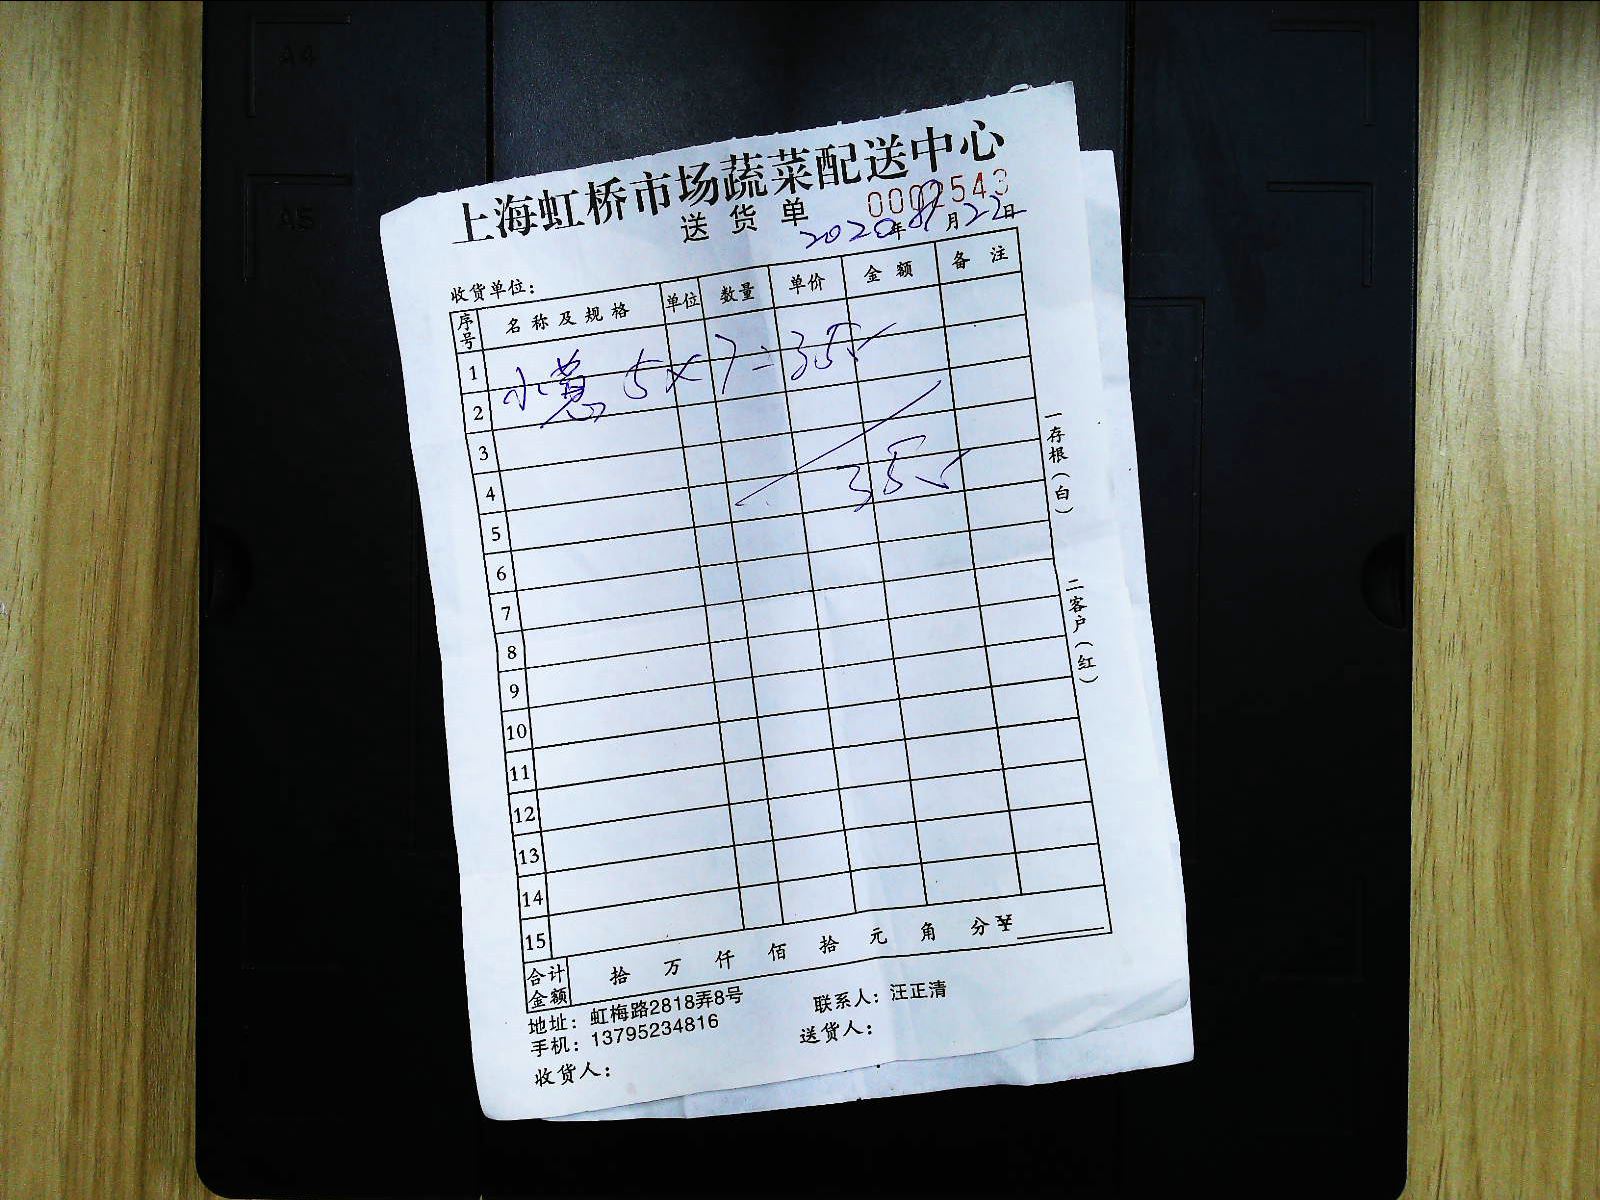 A4
A5
上海虹桥市场蔬菜配送中心
0002543
送货单
2020年 月22日
收货单位：
序号 名称及规格 单位 数量 单价 金额 备注
1
小葱 5×7=35
2
3
4
35
5
6
7
8
9
10
11
12
13
14
15
合计金额 拾 万 仟 佰 拾 元 角 分¥
地址：虹梅路2818弄8号 联系人：汪正清
手机：13795234816 送货人：
收货人：
一存根（白）
二客户（红）